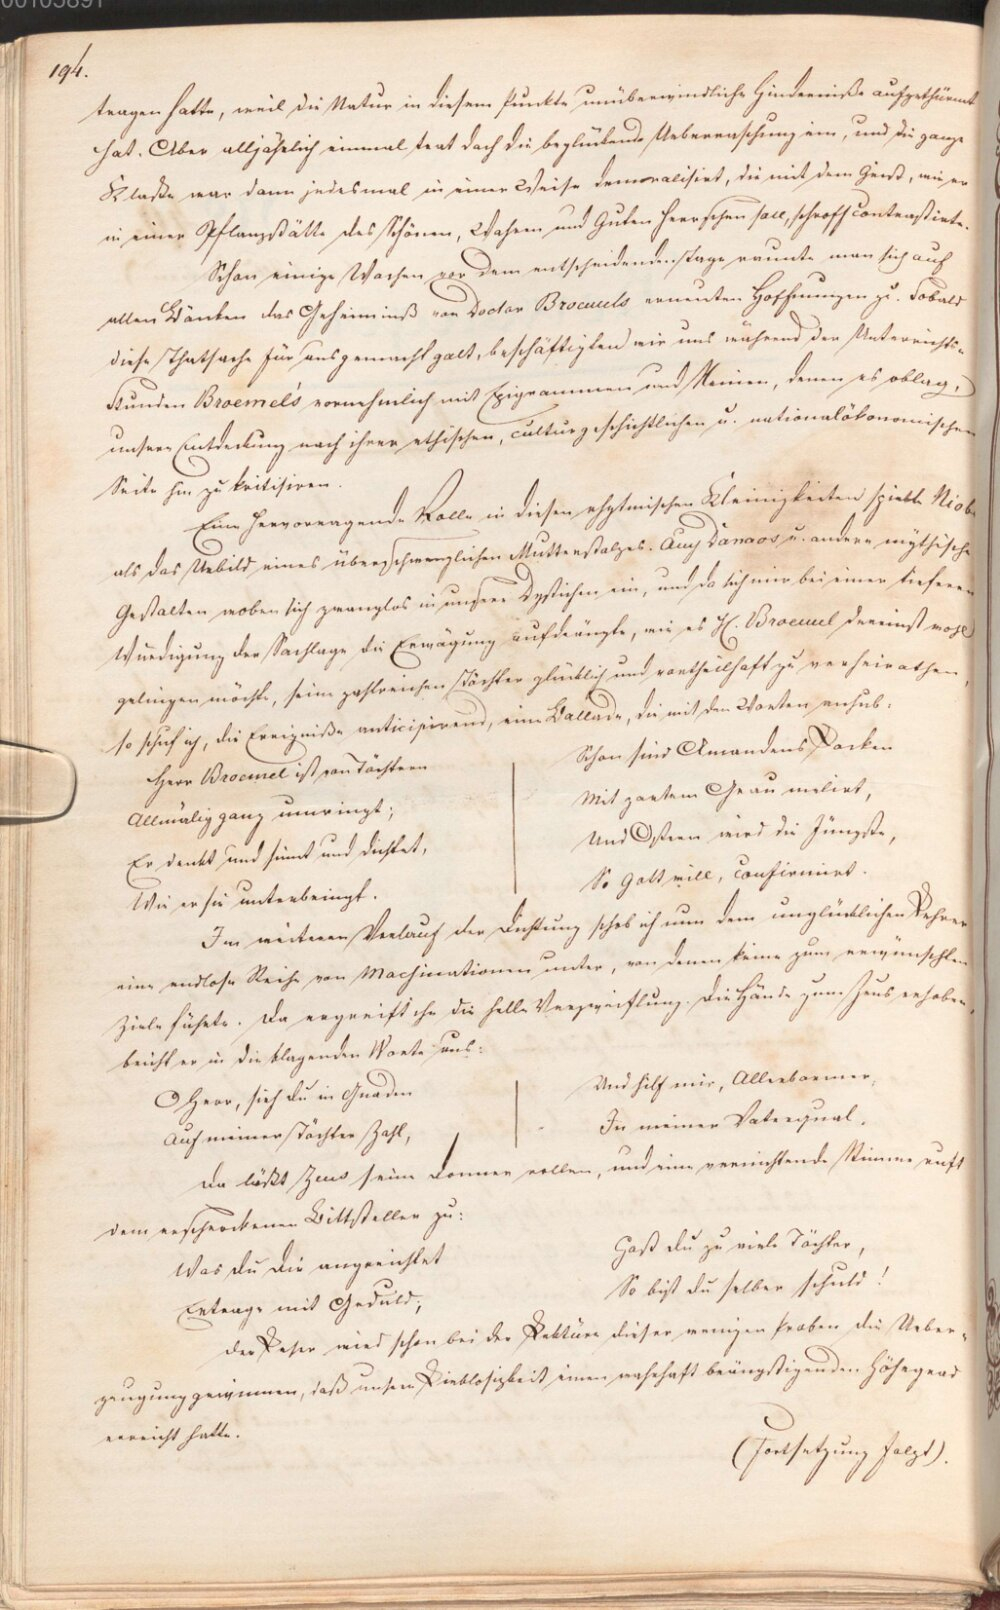 00105891
194.
tragen hatte, weil die Natur in diesem Punkte unüberwindliche Hinderniße aufgethürmt
hat. Aber alljährlich einmal trat doch die beglückende Ueberraschung ein, und die ganze
Klaße war dann jedesmal in einer Weise demoralisirt, die mit dem Geist, wie er
in einer Pflanzstätte des Schönen, Wahren und Guten herrschen soll, schroff contrastirte.
Schon einige Wochen vor dem entscheidenden Tage raunte man sich auf
allen Bänken das Geheimniß von Doctor Broemels erneuten Hoffnungen zu. Sobald
diese Thatsache für ausgemacht galt, beschäftigten wir uns während der Unterrichts-
stunden Broemel's vornehmlich mit Epigrammen und Xenien, denen es oblag,
unsere Entdeckung nach ihrer ethischen, culturgeschichtlichen u. nationalökonomischen
Seite hin zu kritisiren.
Eine hervorragende Rolle in diesen rhytmischen Kleinigkeiten spielte Niobe
als das Urbild eines überschwenglichen Mutterstolzes. Auch Danaos u. andere mythische
Gestalten woben sich zwanglos in unsere Dystichen ein, und da sich mir bei einer tieferen
Würdigung der Sachlage die Erwägung aufdrängte, wie es H. Broemel dereinst wohl
gelingen möchte, seine zahlreichen Töchter glücklich und vortheilhaft zu verheirathen,
so schuf ich, die Ereigniße anticipirend, eine Ballade, die mit den Worten anhub:
Herr Broemel ist von Töchtern
Allmälig ganz umringt;
Er denkt und sinnt und dichtet,
Wie er sie unterbringt.
Schon sind Amandens Locken
Mit zartem Grau melirt,
Und Ostern wird die Jüngste,
So Gott will, confirmirt.
Im weiteren Verlauf der Dichtung schob ich nun dem unglücklichen Lehrer
eine endlose Reihe von Machinationen unter, von denen keine zum erwünschten
Ziele führte. Da ergreift ihn die helle Verzweiflung. Die Hände zum Zeus erhoben,
bricht er in die klagenden Worte aus:
O Herr, sieh du in Gnaden
Auf meiner Töchter Zahl,
Und hilf mir, Allerbarmer,
In meiner Vaterqual.
Da läßt Zeus seine Donner rollen, und eine vernichtende Stimme ruft
dem erschrockenen Bittsteller zu:
Was du dir angerichtet
Ertrage mit Geduld;
Hast du zu viele Töchter,
So bist du selber schuld!
Der Leser wird schon bei der Lektüre dieser wenigen Proben die Ueber-
zeugung gewinnen, daß unsere Lieblosigkeit einen wahrhaft beängstigenden Höhegrad
erreicht hatte.
(Fortsetzung folgt).